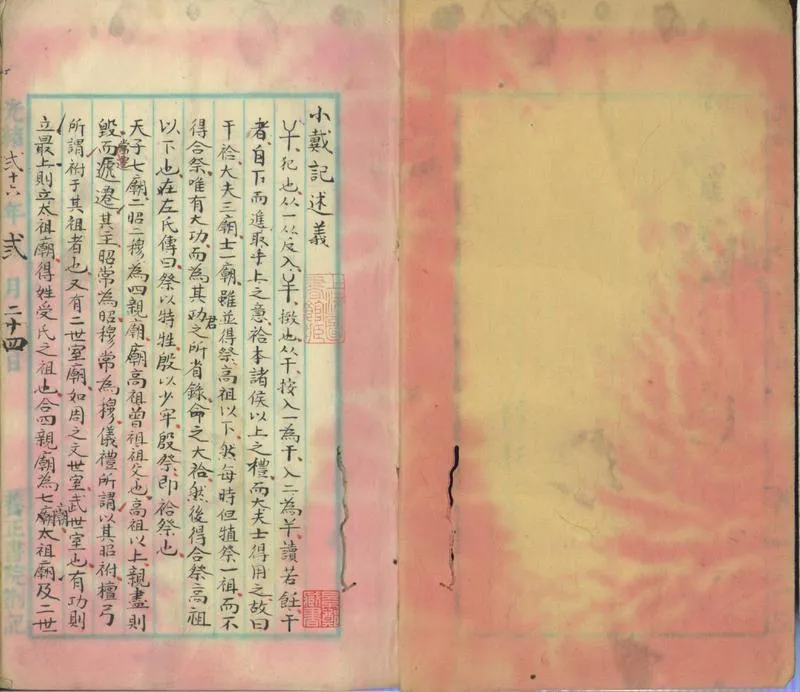 小戴記述義
犯也从一从反入𢆉、撖也从干、按入一為干、入二為𢆉讀若飪、干
者、自下而進取乎上之意、祫本諸侯以上之禮、而大夫士得用之、故曰
干祫、大夫三廟、士一廟、雖並得祭高祖以下、然每時但犆祭一祖、而不
得合祭、唯有大功、而為其君之所省錄、命之大祫、然後得合祭高祖
以下也、在左氏傳曰、祭以特牲、殷以少牢、殷祭、即祫祭也、
天子七廟、二昭二穆、為四親廟、廟高祖曾祖祖父也、高祖以上親盡則
毀、而遞遷其主、昭常為昭、穆常為穆、儀禮所謂以其昭祔、檀弓
所謂祔于其祖者也、又有二世室廟、如周之文世室、武世室也、有功則
立、最上則立太祖廟、得姓受氏之祖也、合四親廟為七廟、太祖廟及二世
光緒弍十六年弍月二十四日
正書院
上海圖書館藏